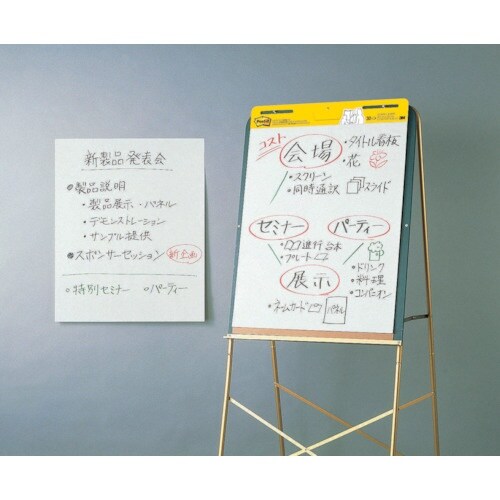 新製品発表会
●製品説明
・製品展示、-パネル
・デモンストレーション
・サンプル提供
●スポンサーセッション 新企画
○特別セミナー ○パーティー
Post-it
3M
コスト
会場
・タイトル看板
・花
・スクリーン
・同時通訳
スライド
セミナー
パーティ
・進行台本
展示
・ドリンク
・料理
・コンパニオン
・ネームカード
パネル